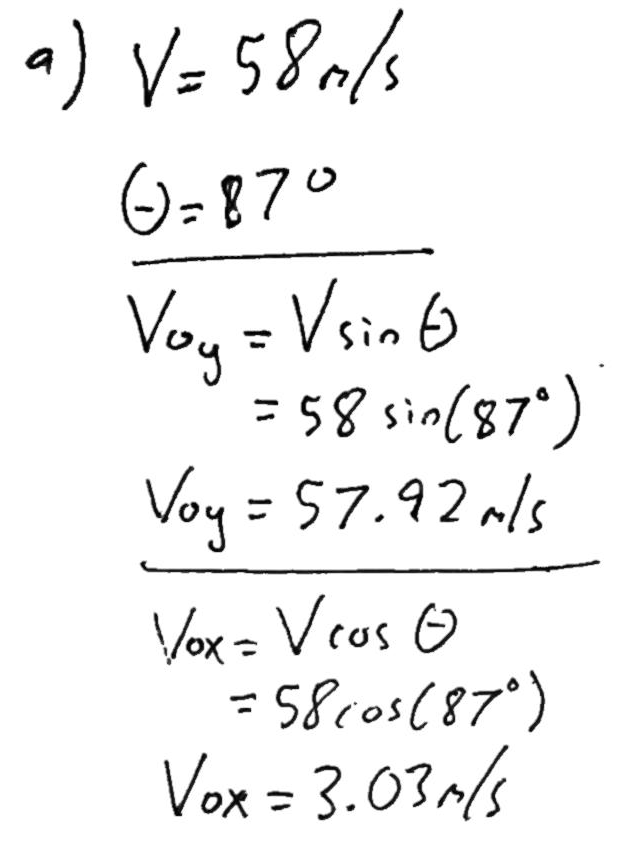 a) V = 58 m/s
θ = 87°
Voy = V sin θ
= 58 sin(87°)
Voy = 57.92 m/s
Vox = V cos θ
= 58 cos(87°)
Vox = 3.03 m/s